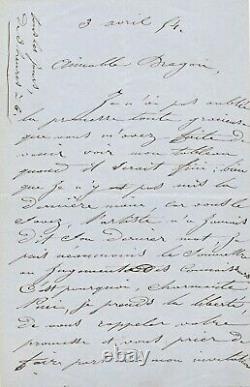 tous les jours
de 3 heures à 6
3 avril 54.
Aimable
Je n'ai pas oublié
la promesse toute gracieuse
que vous m'avez faite de
venir voir mon tableau
quand il serait fini, bien
que je n'y ai pas mis la
dernière main, car vous le
savez, l'artiste n'a jamais
dit son dernier mot, je
puis néanmoins le soumettre
au jugement des
C'est pourquoi, charmante
je prends la liberté
de vous rappeler votre
promesse et vous prier de
faire part de mon